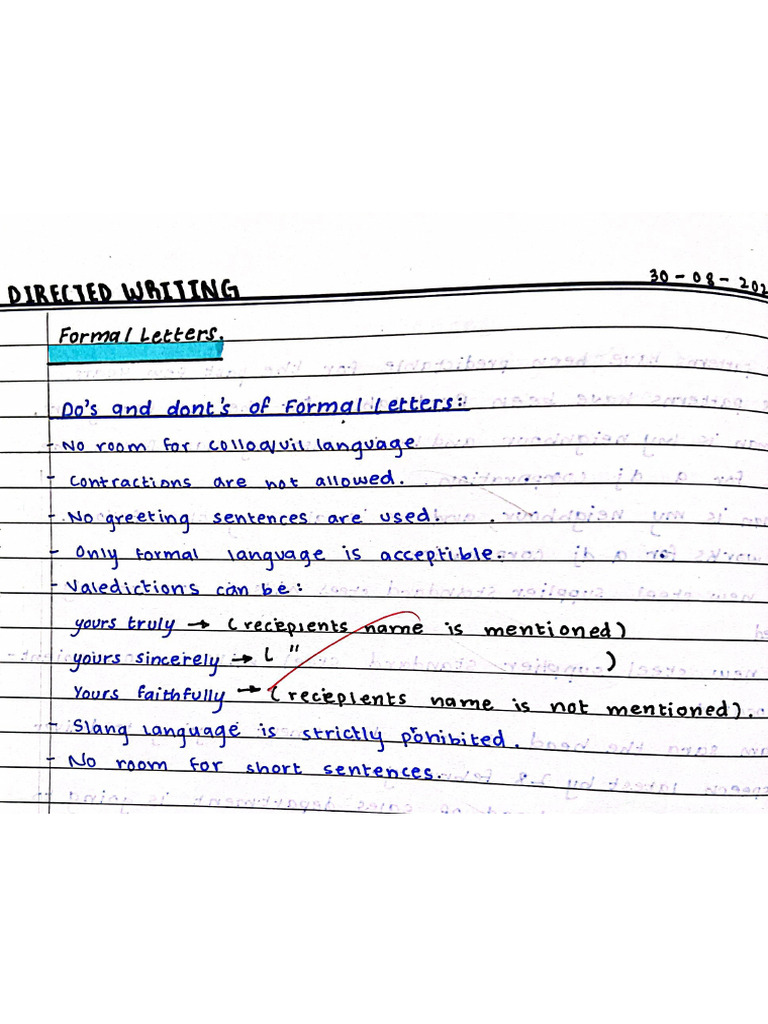 DIRECTED WRITING
30-08-202
Formal Letters.
Do's and dont's of Formal Letters:
- No room for colloquil language
- Contractions are not allowed.
- No greeting sentences are used.
- Only formal language is acceptible.
- Valedictions can be:
yours truly → (reciepients name is mentioned)
yours sincerely → ( " )
Yours faithfully → (reciepients name is not mentioned).
- Slang language is strictly prohibited.
- No room for short sentences.